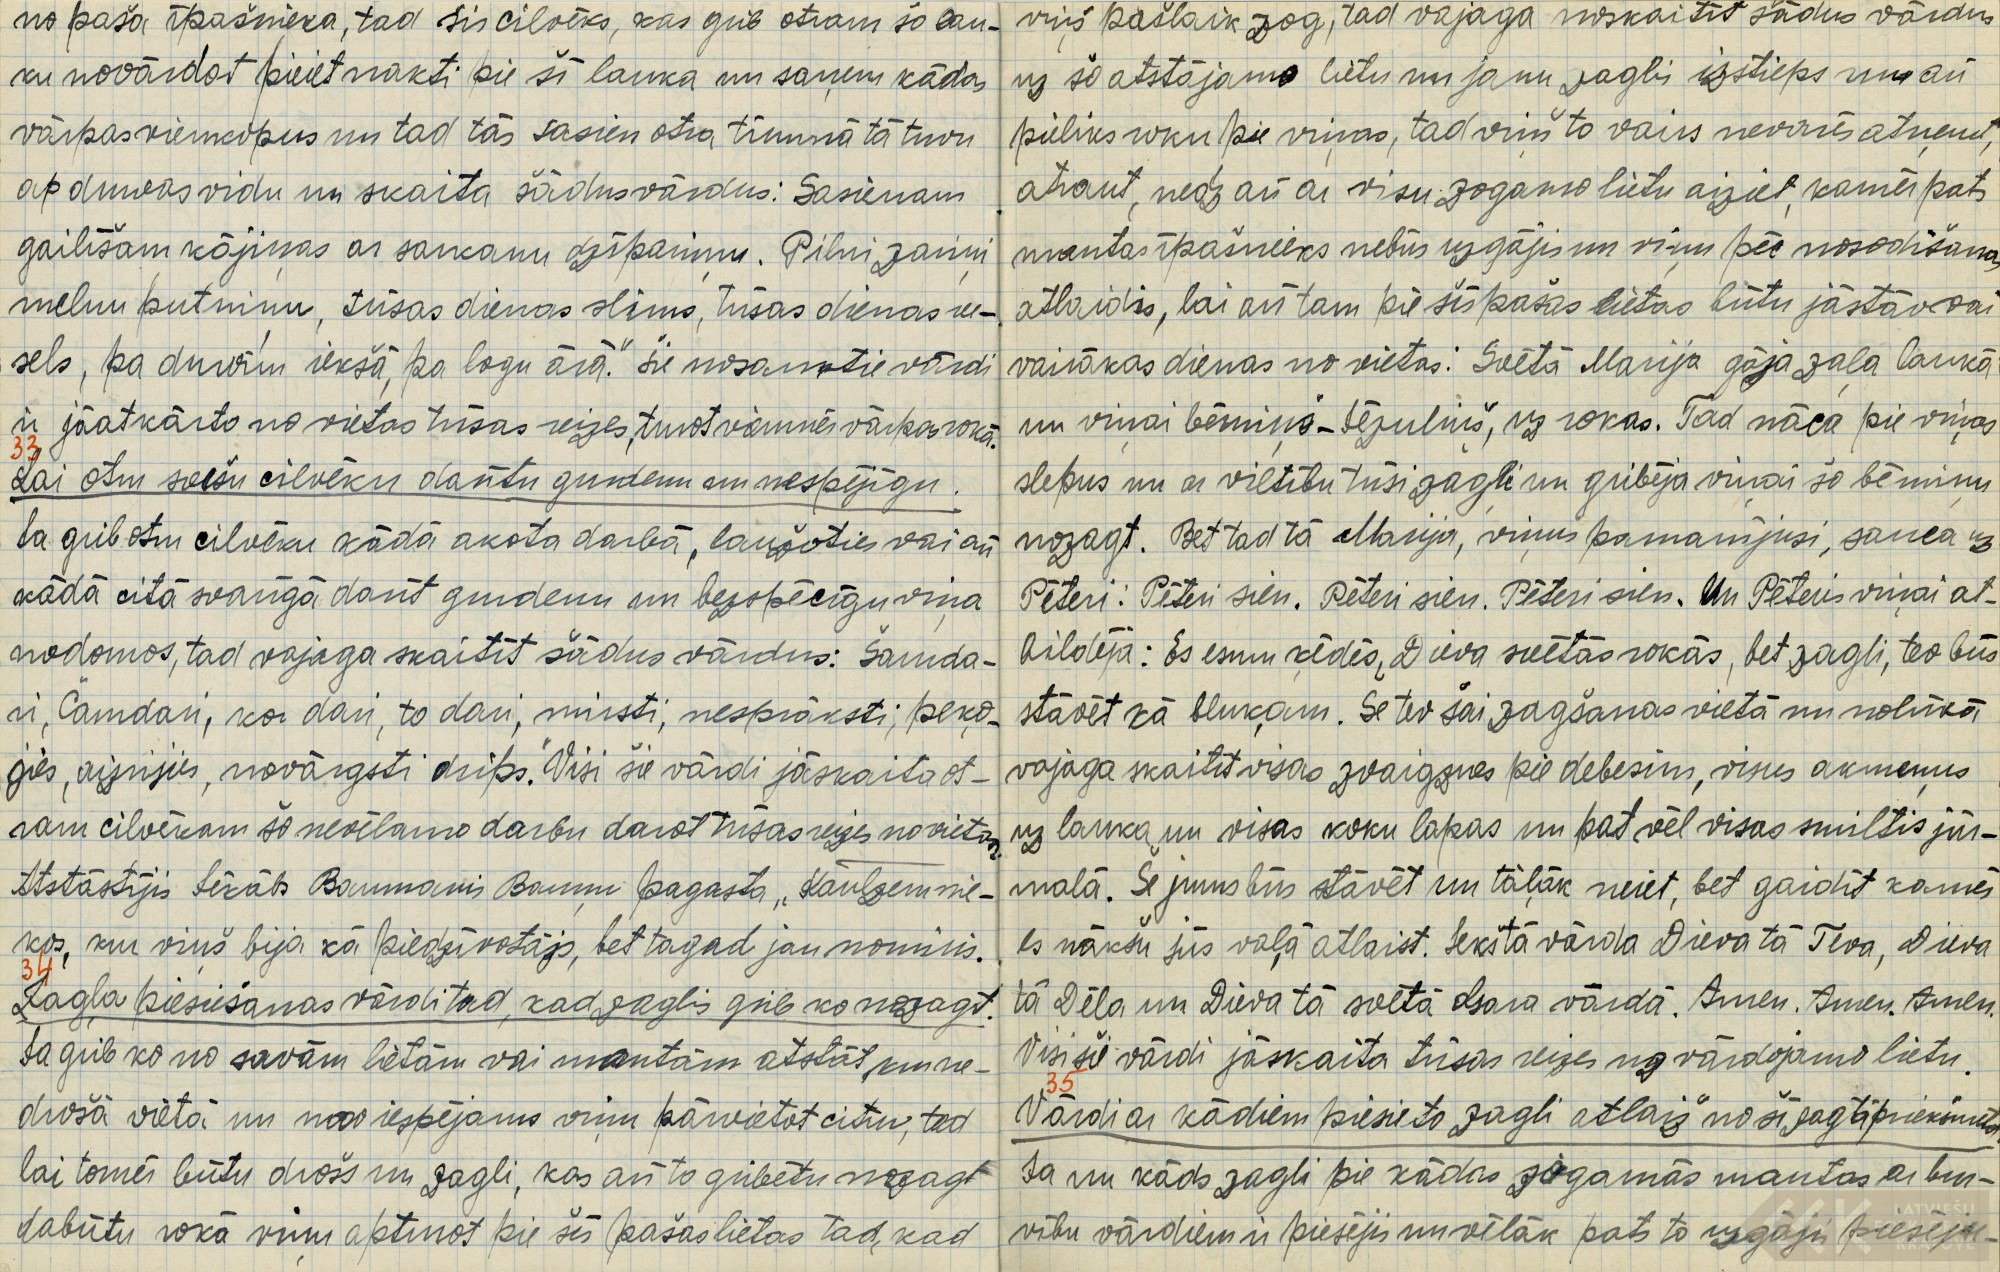 no paša īpašnieka, tad šis cilvēks, kas grib otram šo lau-
ku novārdot pieiet naktī pie šī lauka un saņem kādas
vārpas vienkopus un tad tās sasien otra tīrumā tā turu
ap durvas vidu un skaita šādus vārdus: Sasienam
gailīšam kājiņas ar sarkanu dzīpariņu. Pilni zariņi
melnu putniņu, trīsas dienas slims, trīsas dienas ve-
sels, pa durvīm iekšā, pa logu ārā." Šie nosauktie vārdi
ir jāatkārto no vietas trīsas reizes, turot vienmēr vārpas rokā.
33
Lai otru svešu cilvēku darītu gurdenu un nespējīgu.
Ja grib otru cilvēku kādā akota darbā, lauzoties vai arī
kādā citā svarīgā darīt gurdenu un bezspēcīgu viņa
nodomos, tad vajaga skaitīt šādus vārdus: Šamda-
ri, Čamdari, ko dari, to dari, mirsti, nesprāksti, peko-
jies, aizrijies, novārgsti drīps." Visi šie vārdi jāskaita ot-
ram cilvēkam šo nevēlamo darbu darot trīsas reizes no vietas.
Atstāstījis Jēkabs Baumanis Bauņu pagasta „Kaulzemnie-
kos, kur viņš bija kā piedzīvotājs, bet tagad jau nomiris.
34
Zagļa piesiešanas vārdi tad, kad zaglis grib ko nozagt.
Ja grib ko no savām lietām vai mantām atstāt, kur ne-
drošā vietā un nav iespējams viņu pārvietot citur, tad
lai tomēr būtu drošs un zagli, kas arī to gribētu nozagt
dabūtu rokā viņu apturot pie šīs pašas lietas tad, kad
viņš pašlaik zog, tad vajaga noskaitīt šādus vārdus
uz šo atstājamo lietu un ja nu zaglis izstieps un arī
pieliks roku pie viņas, tad viņš to vairs nevarēs atņemt,
atraut, nedz arī ar visu zogamo lietu aiziet, kamēr pats
mantas īpašnieks nebūs uzgājis un viņu pēc nosodīšanas
atlaidis, lai arī tam pie šīs pašas lietas būtu jāstāv vai
vairākas dienas no vietas: Svētā Marija gāja zaļā laukā
un viņai bērniņš – Jēzuliņš, uz rokas. Tad nāca pie viņas
slepus un ar viltību trīsi zagļi un gribēja viņai šo bērniņu
nozagt. Bet tad tā Marija, viņus pamanījusi, sauca uz
Pēteri: Pēteri sien. Pēteri sien. Pēteri sien. Un Pēteris viņai at-
bildēja: Es esmu ķēdēs, Dieva svētās rokās, bet zagli, tev būs
stāvēt kā bluķam. Še tev šai zagšanas vietā un nolūkā
vajaga skaitīt visas zvaigznes pie debesīm, visus akmeņus
uz lauka un visas koku lapas un pat vēl visas smiltis jūr-
malā. Še jums būs stāvēt un tālāk neiet, bet gaidīt kamēr
es nākšu jūs vaļā atlaist. Iekš tā vārda Dieva tā Tēva, Dieva
tā Dēla un Dieva tā svētā Gara vārdā. Amen. Amen. Amen.
Visi šie vārdi jāskaita trīsas reizes uz vārdojamo lietu.
35
Vārdi ar kādiem piesieto zagli atlaiž no šī zagtā priekšmeta.
Ja nu kāds zagli pie kādas zogamās mantas ar bur-
vību vārdiem ir piesējis un vēlāk pats to uzgājis piesēju-